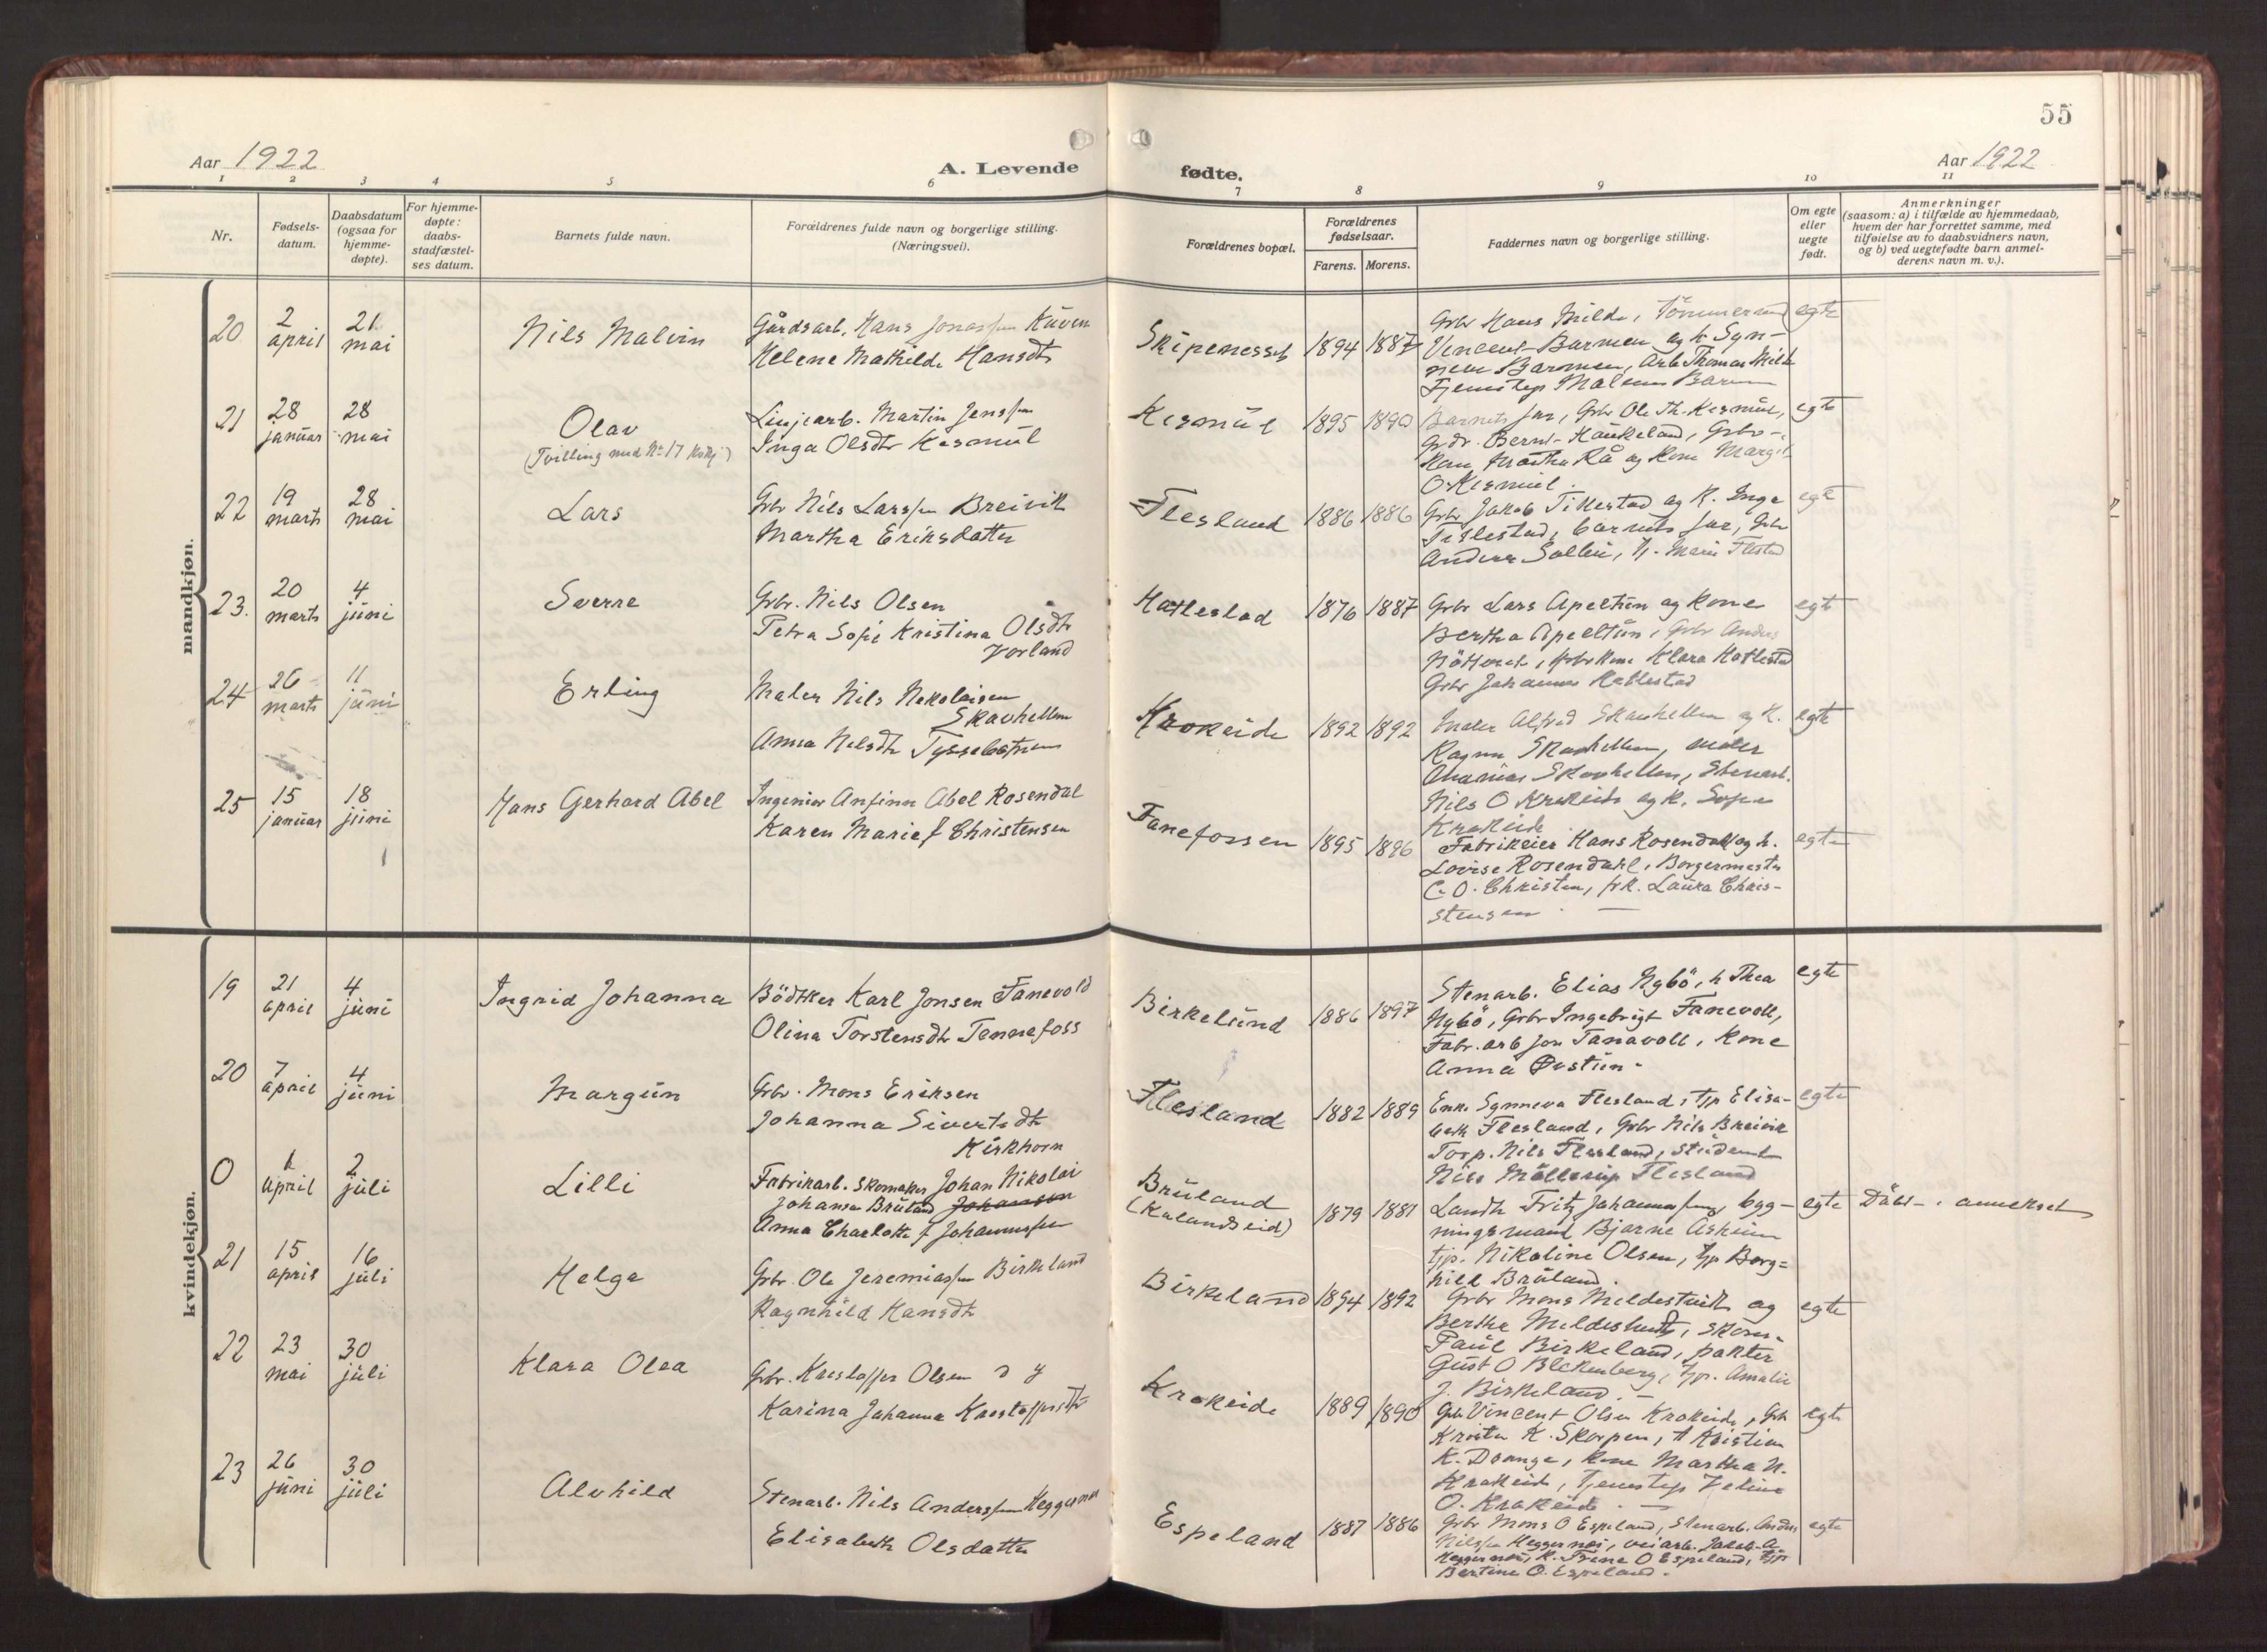 55
Aar 1922
A. Levende
fødte.
Aar 1922
1 2 3 4 5 6 7 8 9 10 11
Nr.
Fødsels-
datum.
Daabsdatum
(ogsaa for
hjemme-
døpte).
For hjemme-
døpte:
daabs-
stadfæstel-
ses datum.
Barnets fulde navn.
Forældrenes fulde navn og borgerlige stilling.
(Næringsvei).
Forældrenes bopæl.
Forældrenes
fødselsaar.
Farens. Morens.
Faddernes navn og borgerlige stilling.
Om egte
eller
uegte
født.
Anmerkninger
(saasom: a) i tilfælde av hjemmedaab,
hvem der har forrettet samme, med
tilføielse av to daabsvidners navn,
og b) ved uegtefødte barn anmel-
derens navn m. v.).
mandkjøn.
20
2
april
21
mai
Nils Malvin
Gårdsarb. Hans Jonassen Kuven
Helene Mathilde Hansdtr
Skipenesset
1894 1887
Grbr Hans Milde, Tömmermand
Vincent Barmen og h. Syn-
neve Barmen, Arb Thomas Milde
Tjenestep Malene Barmen
egte
21
28
januar
28
mai
Olav
(Tvilling med No 17 Kvkj)
Linjearb. Martin Jenssen
Inga Olsdtr Kismül
Kismül
1895 1890
Barnets far, Grbr Ole Th. Kismül,
Grdr. Bernt Haukeland, Grbr-
kone Martha Rå og kone Margit
O. Kismül.
egte
22
19
marts
28
mai
Lars
Grbr Nils Larssen Breivik
Martha Eriksdatter
Flesland
1886 1886
Grbr Jakob Titlestad og K. Inga
Titlestad, barnets far, Grbr
Anders Sollien, Marie
egte
23.
20
marts
4
juni
Sverre
Grbr. Nils Olsen
Petra Sofie Kristina Olsdtr
Vorland
Hatlestad
1876 1887
Grbr Lars Apeltun og kone
Bertha Apeltun, Grbr Anders
Nöttveit, Grbrkone Klara Hatlestad
Grbr Johannes Hatlestad
egte
24
26
marts
11
juni
Erling
Maler Nils Nikolaisen
Skavhellen
Anna Nilsdtr Tyssebotnen
Krokeide
1892 1892
Maler Alfred Skavhellen og K.
Ragna Skavhellen, maler
Ananias Skavhellen, Stenarb.
Nils O Krokeide og K. Sofie
Krokeide.
egte
25
15
januar
18
juni
Hans Gerhard Abel
Ingeniør Anfinn Abel Rosendal
Karen Marie f Christensen
Fanefossen
1895 1896
Fabrikeier Hans Rosendahl og h.
Lovise Rosendahl, Borgermester
C. O. Christen, frk. Laura Chris-
stensen
egte
kvindekjøn.
19
21
april
4
juni
Ingrid Johanna
Bödtker Karl Jonsen Fanevold
Olina Torstensdtr Tennefoss
Birkelund
1886 1897
Stenarb. Elias Nybö, h Thea
Nybö, Grbr Ingebrigt Fanevoll,
Fabr.arb Jon Fanavoll, kone
Anna Øvstün.
egte
20
7
april
4
juni
Margün
Grbr. Mons Eriksen
Johanna Sivertsdtr
Kirkhorn
Flesland
1882 1889
Enke Synneva Flesland, tjp Elisa-
beth Flesland, Grbr Nils Breivik
Torp. Nils Flesland, student
Nils Möllerup Flesland
egte
0
april
2
juli
Lilli
Fabrikarb. Skomaker Johan Nikolai
Johansen Brüland Johansen
Anna Charlotte f Johannessen
Brüland
(Kalandseid)
1879 1881
Landh Fritz Johannessen, byg-
ningsmand Bjarne Asheim
tjp. Nikoline Olsen, tjp Borg=
hild Brüland.
egte
Dåbs- annekset
21
15
april
16
juli
Helga
Grbr. Ole Jeremiassen Birkeland
Ragnhild Hansdtr
Birkeland
1894 1892
Grbr Mons Mildestveit og
Berthe Mildestveit, skom.
Paul Birkeland, pakter
Gust O Bleckenberg, tjp. Amalie
J. Birkeland.
egte
22
23
mai
30
juli
Klara Olea
Grbr. Kristoffer Olsen d y
Karina Johanna Kristoffersdtr
Krokeide
1889 1890
Grbr Vincent Olsen Krokeide, Grbr
Krister K. Skorpen, Kristian
K. Drange, Kone Martha N.
Krokeide, Tjenestep Veline
O. Krokeide.
egte
23
26
juni
30
juli
Alvhild
Stenarb. Nils Anderssen Heggernes
Elisabeth Olsdatter
Espeland
1887 1886
Grbr Mons O Espeland, Stenarb. Anders
Nilssen Heggernes, veiarb. Jakob A.
Heggernes, K. Trine O Espeland, tjp
Bertine O. Espeland.
egte